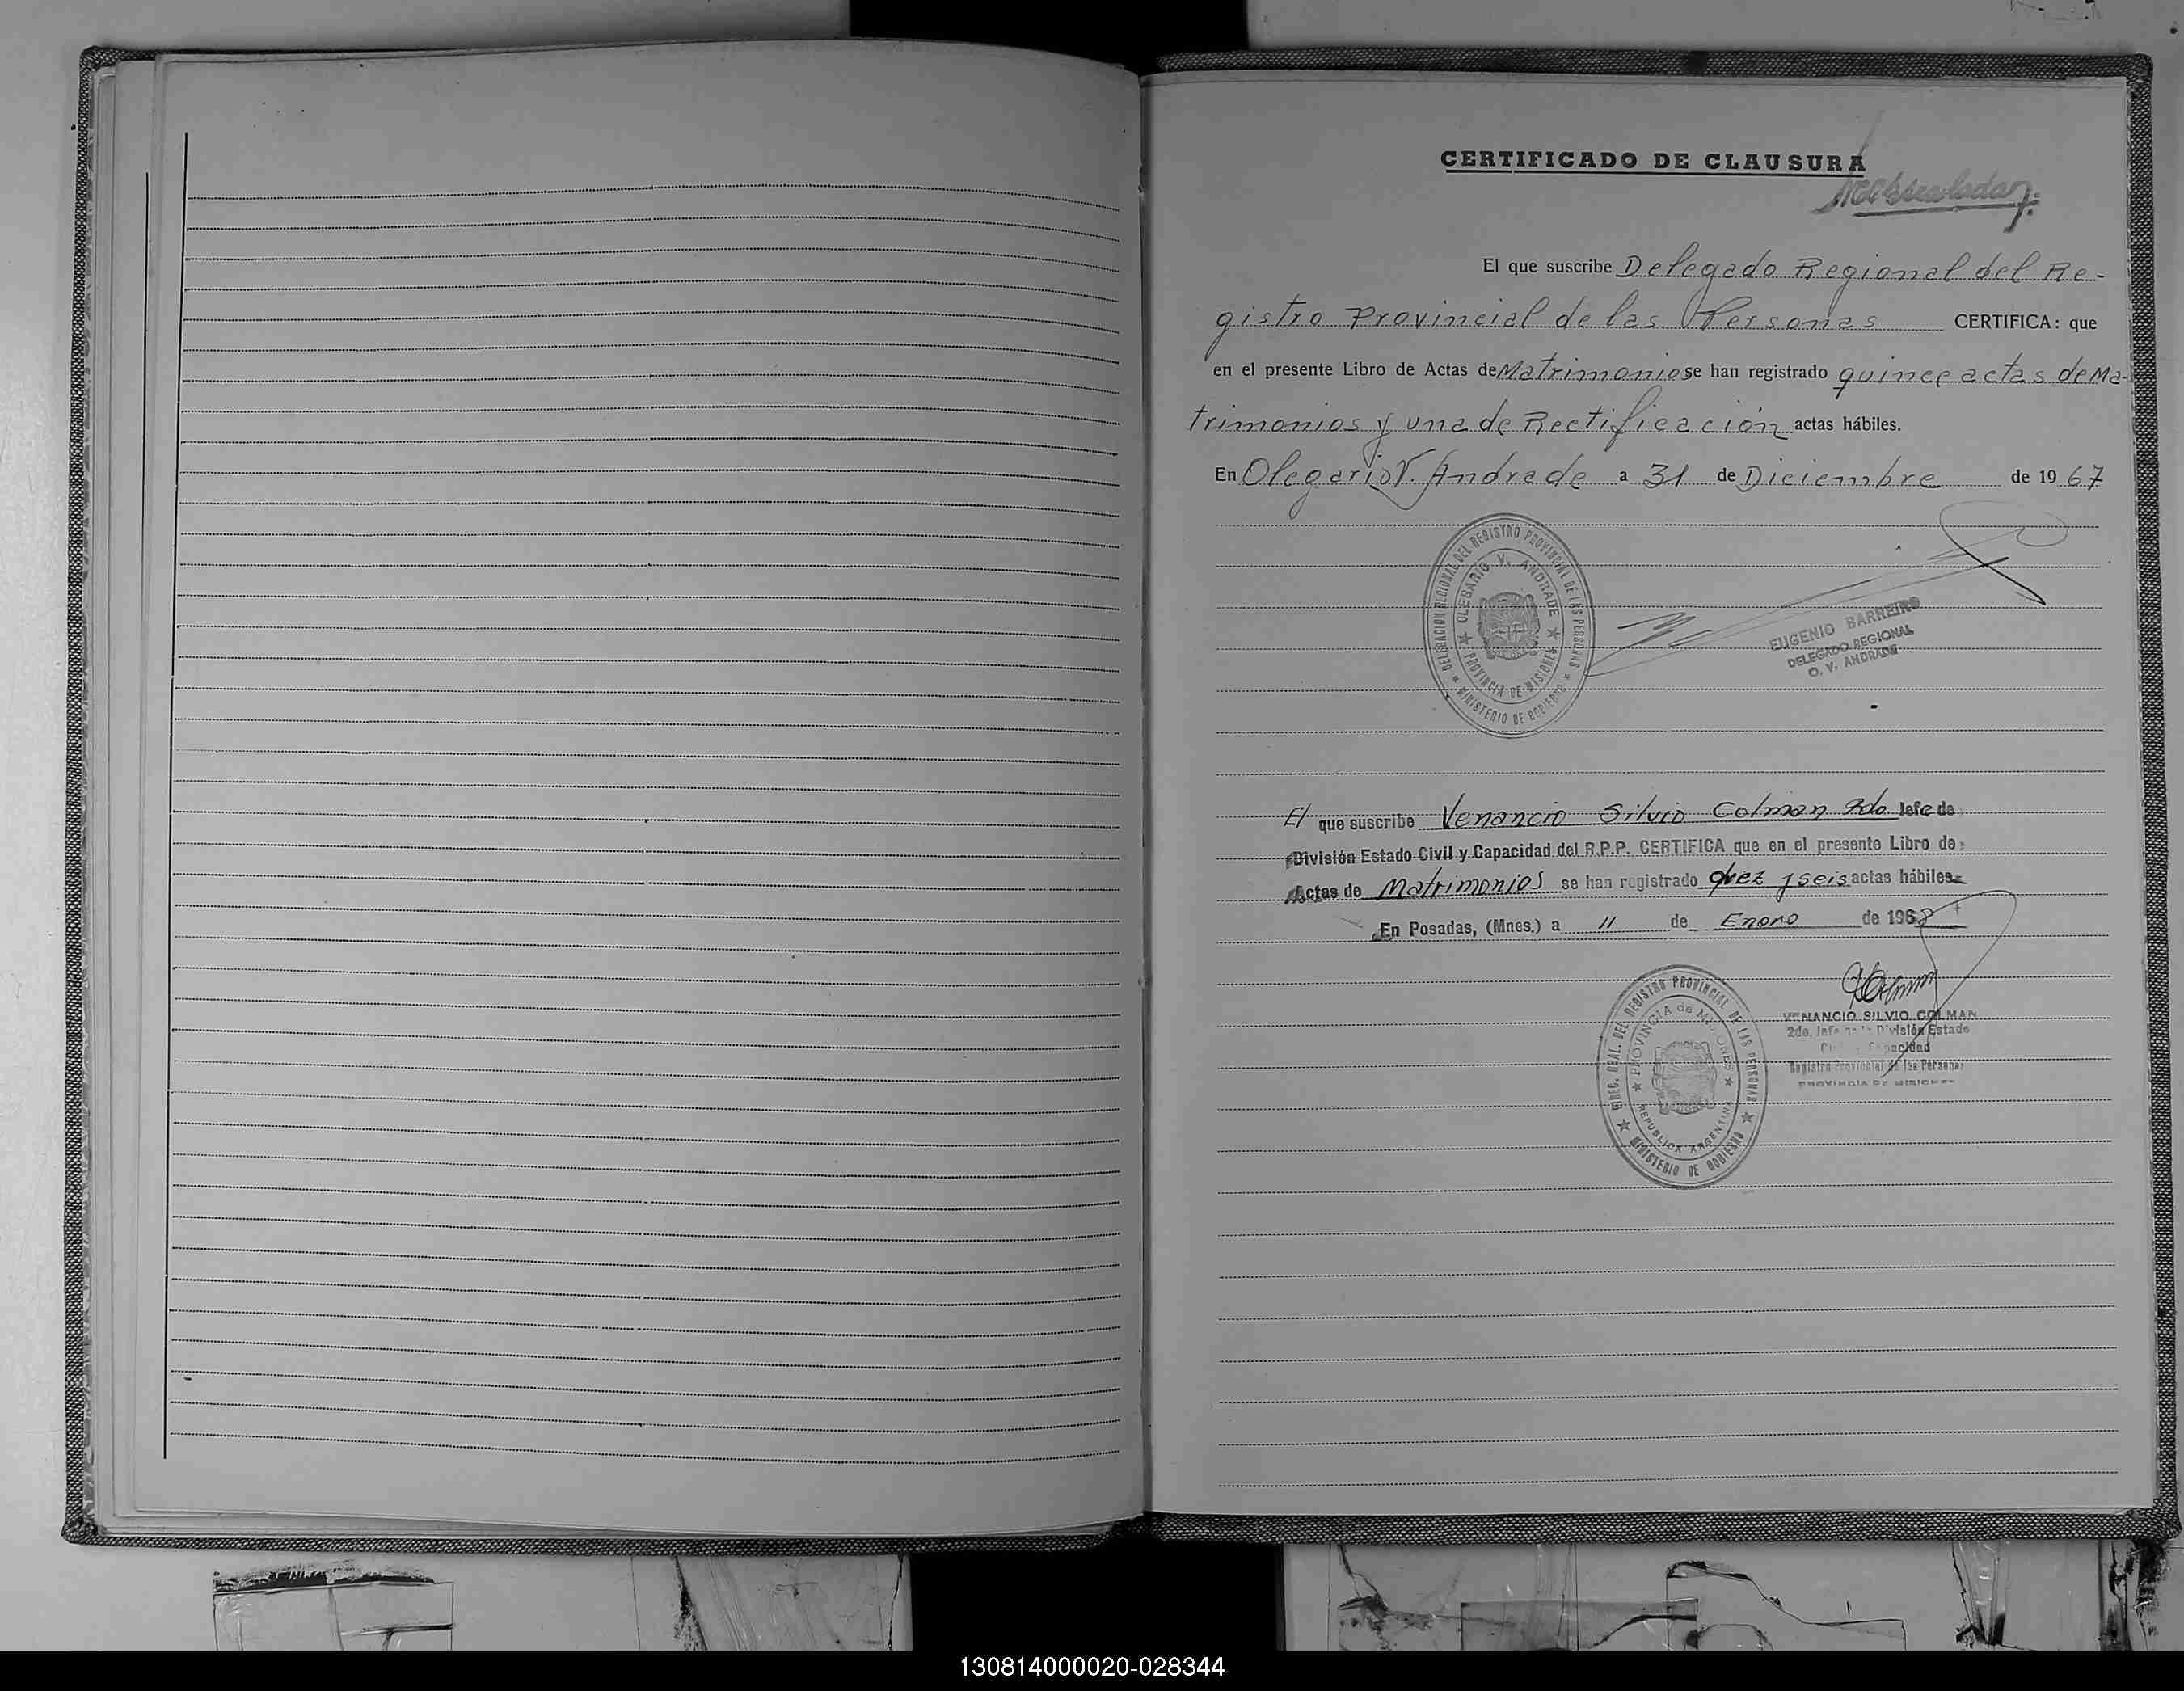 CERTIFICADO DE CLAUSURA
El que suscribe Delegado Regional del Re-
gistro Provincial de las Personas CERTIFICA: que
en el presente Libro de Actas de Matrimonio se han registrado quince actas de Ma-
trimonios y una de Rectificación actas hábiles.
En Olegario V. Andrade a 31 de Diciembre de 1967
DELEGACION REGIONAL DEL REGISTRO PROVINCIAL DE LAS PERSONAS
OLEGARIO V. ANDRADE
PROVINCIA DE MISIONES
MINISTERIO DE GOBIERNO
EUGENIO BARREIRO
DELEGADO REGIONAL
O. V. ANDRADE
El que suscribe Venancio Silvio Colman 2do. Jefe de
División Estado Civil y Capacidad del R.P.P. CERTIFICA que en el presente Libro de
Actas de Matrimonios se han registrado diez y seis actas hábiles
En Posadas, (Mnes.) a 11 de Enero de 1968
DIREC. GRAL. DEL REGISTRO PROVINCIAL DE LAS PERSONAS
PROVINCIA de MISIONES
REPUBLICA ARGENTINA
MINISTERIO DE GOBIERNO
VENANCIO SILVIO COLMAN
2do. Jefe de la División Estado
Capacidad
Registro Provincial de las Personas
PROVINCIA DE MISIONES
130814000020-028344